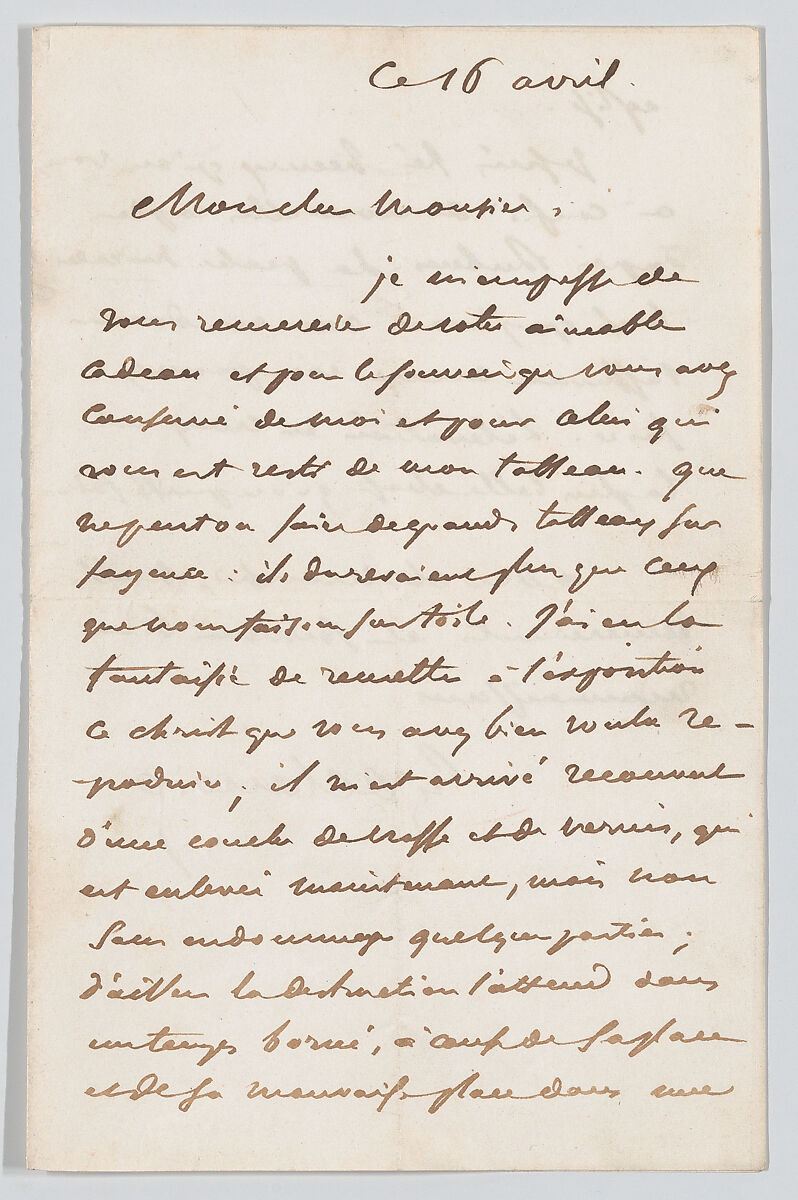 Ce 16 avril.
Mon cher Monsieur,
je m'empresse de
vous remercier de votre aimable
cadeau et pour le souvenir que vous avez
conservé de moi et pour celui qui
vous est resté de mon tableau. que
ne peut on faire de grands tableaux sur
fayence : ils dureraient plus que ceux
que nous faisons sur toile. J'ai eu la
fantaisie de remettre à l'exposition
ce christ que vous avez bien voulu re-
produire ; il m'est arrivé recouvert
d'une couche de crasse et de vernis, qui
est enlevée maintenant, mais non
sans endommager quelques parties ;
d'ailleurs la destruction l'attend dans
un temps borné, à cause de sa place
et de sa mauvaise place dans une